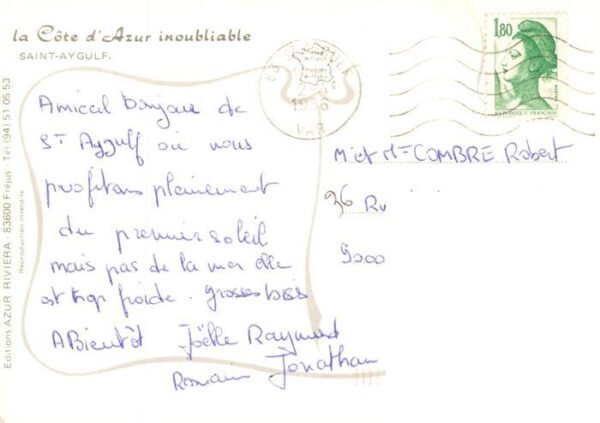 la Côte d'Azur inoubliable
SAINT-AYGULF.
Amical bonjour de
St Aygulf où nous
profitons pleinement
du premier soleil
mais pas de la mer elle
est trop froide. grosses bises
A Bientôt Joëlle Raymond
Romain Jonathan
M et Me COMBRE Robert
36 Ru
9000
1,80
REPUBLIQUE FRANÇAISE
1986
VAR
Editions AZUR RIVIERA - 83600 Fréjus - Tél. (94) 51 05 53
Reproduction interdite